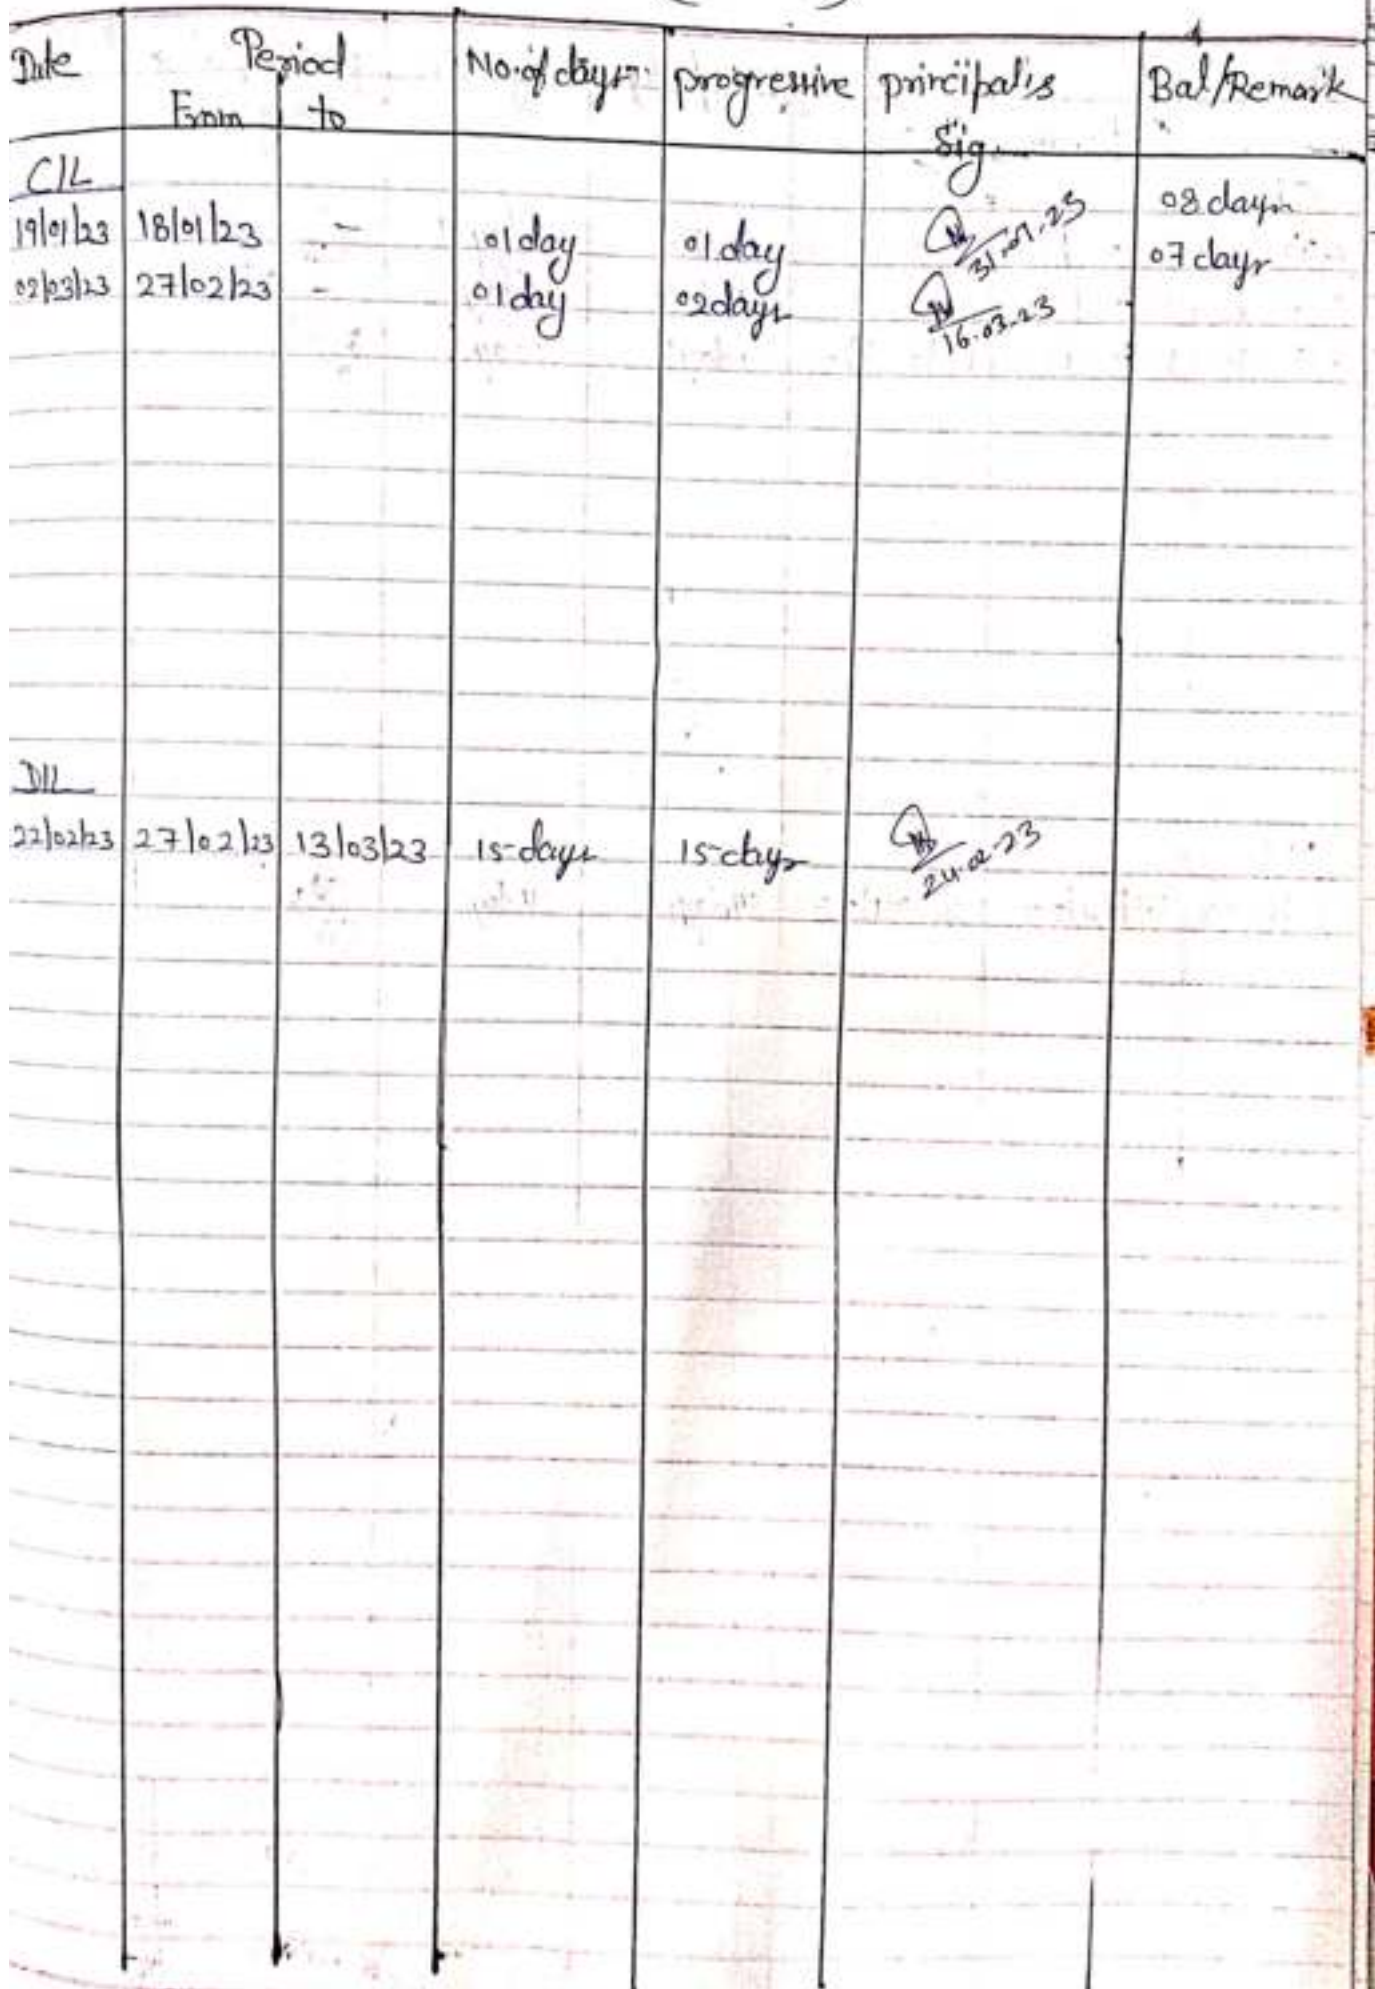 Date Period No. of days progressive principal's Sig. Bal/Remark
From to
C/L
08 days
19/01/23 18/01/23 - 01 day 01 day 31.01.23 07 days
02/03/23 27/02/23 - 01 day 02 days 16.03.23
D/L
22/02/23 27/02/23 13/03/23 15 days 15 days 24.02.23